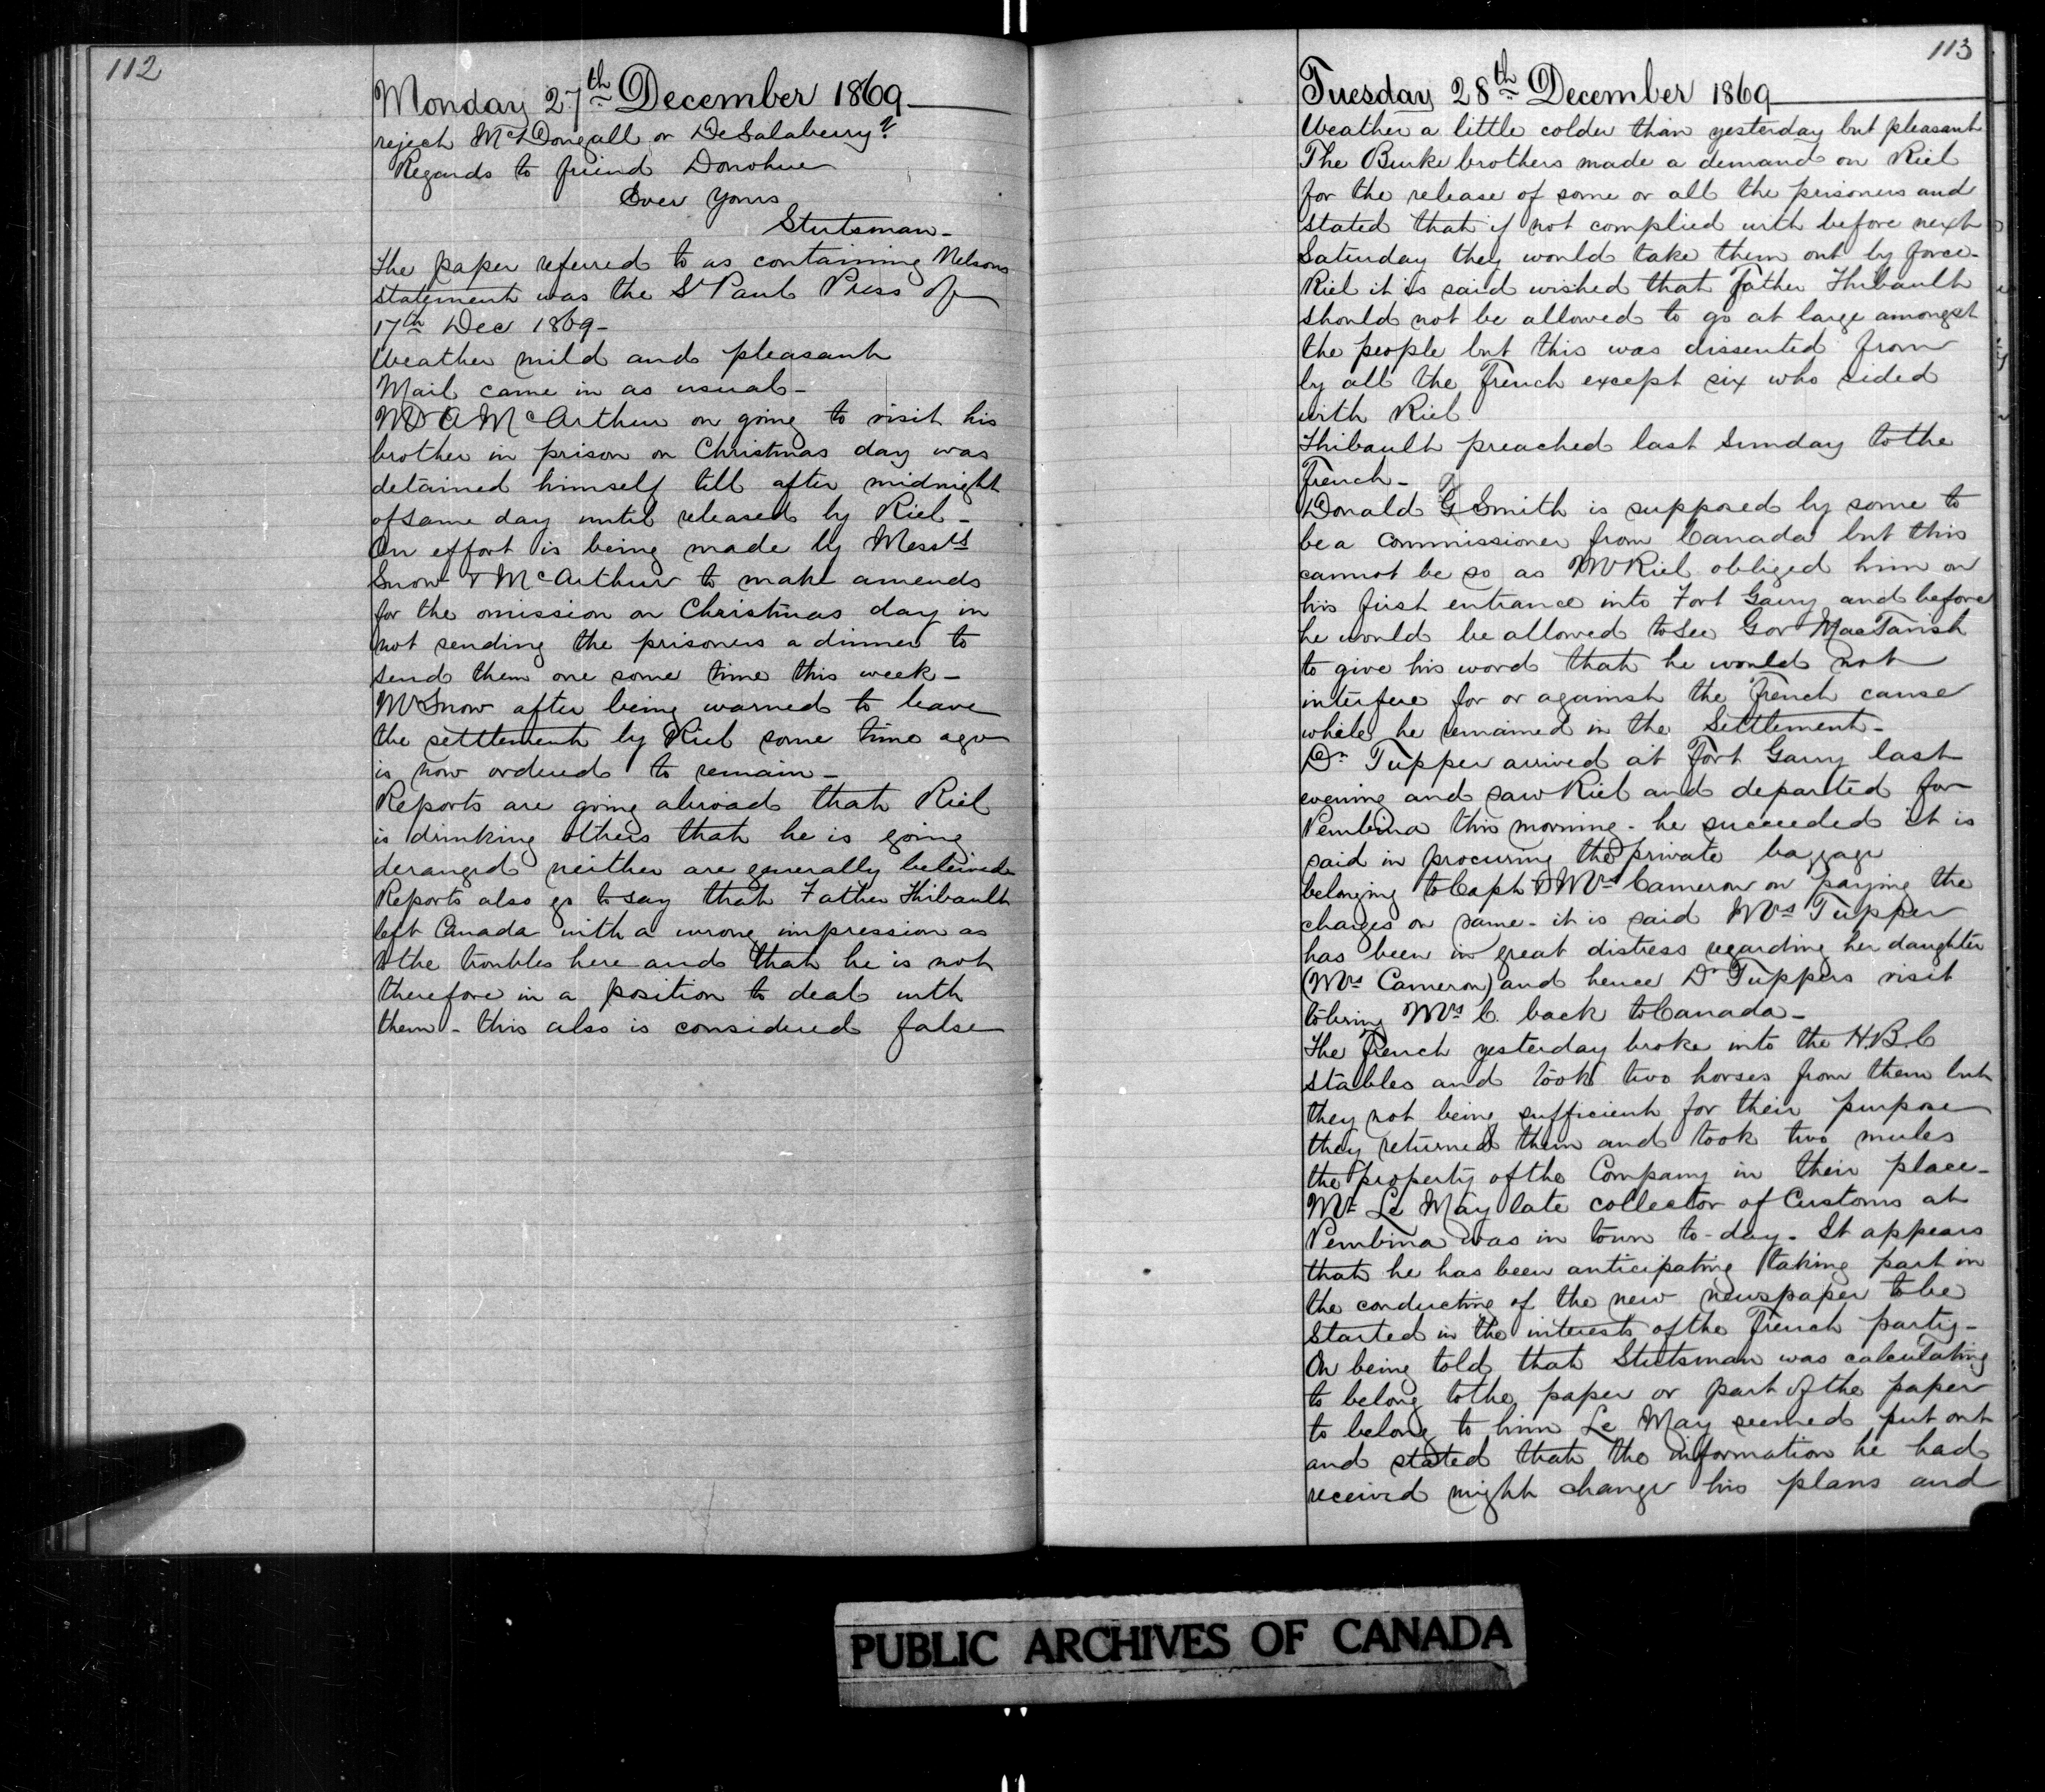 112
Monday 27th December 1869
reject McDougall or DeSalaberry?
Regards to friend Donohue
Ever yours
Stutsman -
The paper referred to as containing Nelsons
statement was the St Paul Press of
17th Dec 1869 -
Weather mild and pleasant
Mail came in as usual -
Mr A McArthur on going to visit his
brother in prison on Christmas day was
detained himself till after midnight
of same day until released by Riel -
An effort is being made by Messrs
Snow & McArthur to make amends
for the omission on Christmas day in
not sending the prisoners a dinner to
send them one some time this week -
Mr Snow after being warned to leave
the settlement by Riel some time ago
is now ordered to remain -
Reports are going abroad that Riel
is drinking others that he is going
deranged neither are generally beleived
Reports also go to say that Father Thibault
left Canada with a wrong impression as
to the troubles here and that he is not
therefore in a position to deal with
them - this also is considered false
113
Tuesday 28th December 1869
Weather a little colder than yesterday but pleasant
The Burke brothers made a demand on Riel
for the release of some or all the prisoners and
stated that if not complied with before next
Saturday they would take them out by force -
Riel it is said wished that Father Thibault
should not be allowed to go at large amongst
the people but this was dissented from
by all the French except six who sided
with Riel
Thibault preached last Sunday to the
French -
Donald G Smith is supposed by some to
be a commissioner from Canada but this
cannot be so as Mr Riel obliged him on
his first entrance into Fort Garry and before
he would be allowed to see Gov MacTavish
to give his word that he would not
interfere for or against the French cause
while he remained in the Settlement -
Dr Tupper arrived at Fort Garry last
evening and saw Riel and departed for
Pembina this morning - he succeeded it is
said in procuring the private baggage
belonging to Capt & Mrs Cameron on paying the
charges on same - it is said Mrs Tupper
has been in great distress regarding her daughter
(Mrs Cameron) and hence Dr Tuppers visit
to bring Mrs C. back to Canada -
The French yesterday broke into the H.B.C
stables and took two horses from them but
they not being sufficient for their purpose
they returned them and took two mules
the property of the Company in their place -
Mr Le May late collector of Customs at
Pembina was in town to-day - It appears
that he has been anticipating taking part in
the conducting of the new newspaper to be
started in the interests of the French party -
On being told that Stutsman was calculating
to belong to the paper or part of the paper
to belong to him Le May seemed put out
and stated that the information he had
received might change his plans and
PUBLIC ARCHIVES OF CANADA